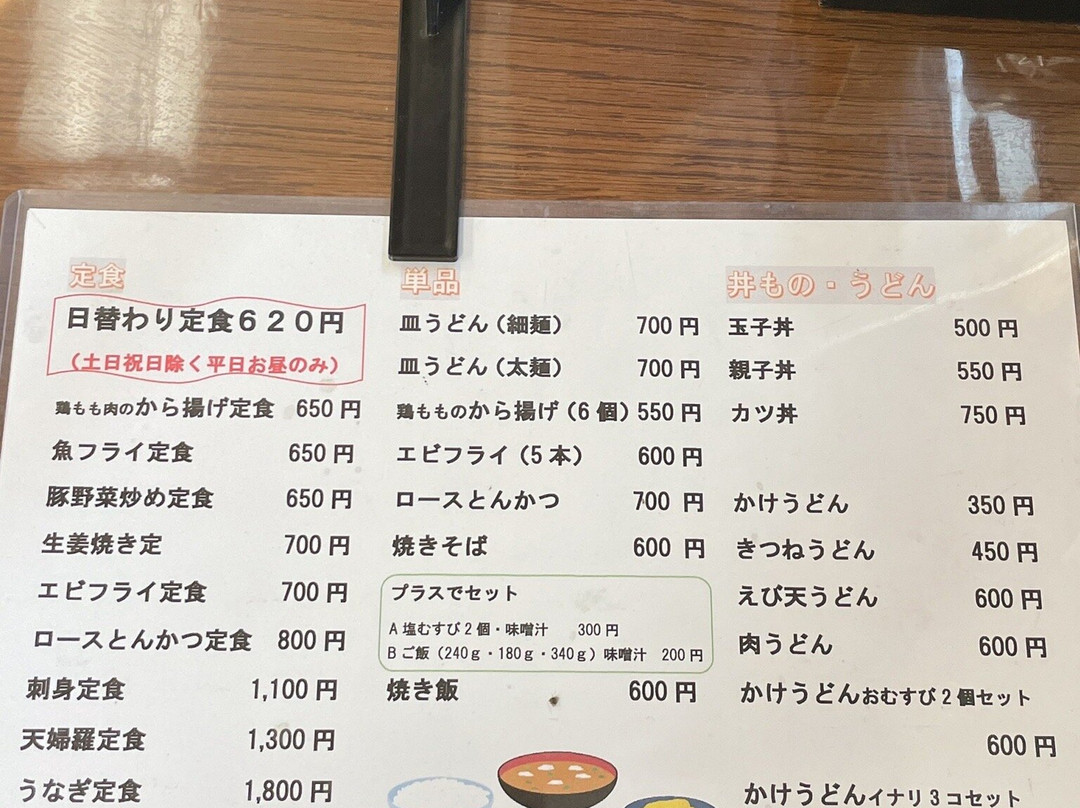 定食
日替わり定食620円
(土日祝日除く平日お昼のみ)
鶏もも肉のから揚げ定食 650円
魚フライ定食 650円
豚野菜炒め定食 650円
生姜焼き定 700円
エビフライ定食 700円
ロースとんかつ定食 800円
刺身定食 1,100円
天婦羅定食 1,300円
うなぎ定食 1,800円
単品
皿うどん(細麺) 700円
皿うどん(太麺) 700円
鶏もものから揚げ(6個) 550円
エビフライ(5本) 600円
ロースとんかつ 700円
焼きそば 600円
プラスでセット
A塩むすび2個・味噌汁 300円
Bご飯(240g・180g・340g)味噌汁 200円
焼き飯 600円
丼もの・うどん
玉子丼 500円
親子丼 550円
カツ丼 750円
かけうどん 350円
きつねうどん 450円
えび天うどん 600円
肉うどん 600円
かけうどんおむすび2個セット
600円
かけうどんイナリ3コセット